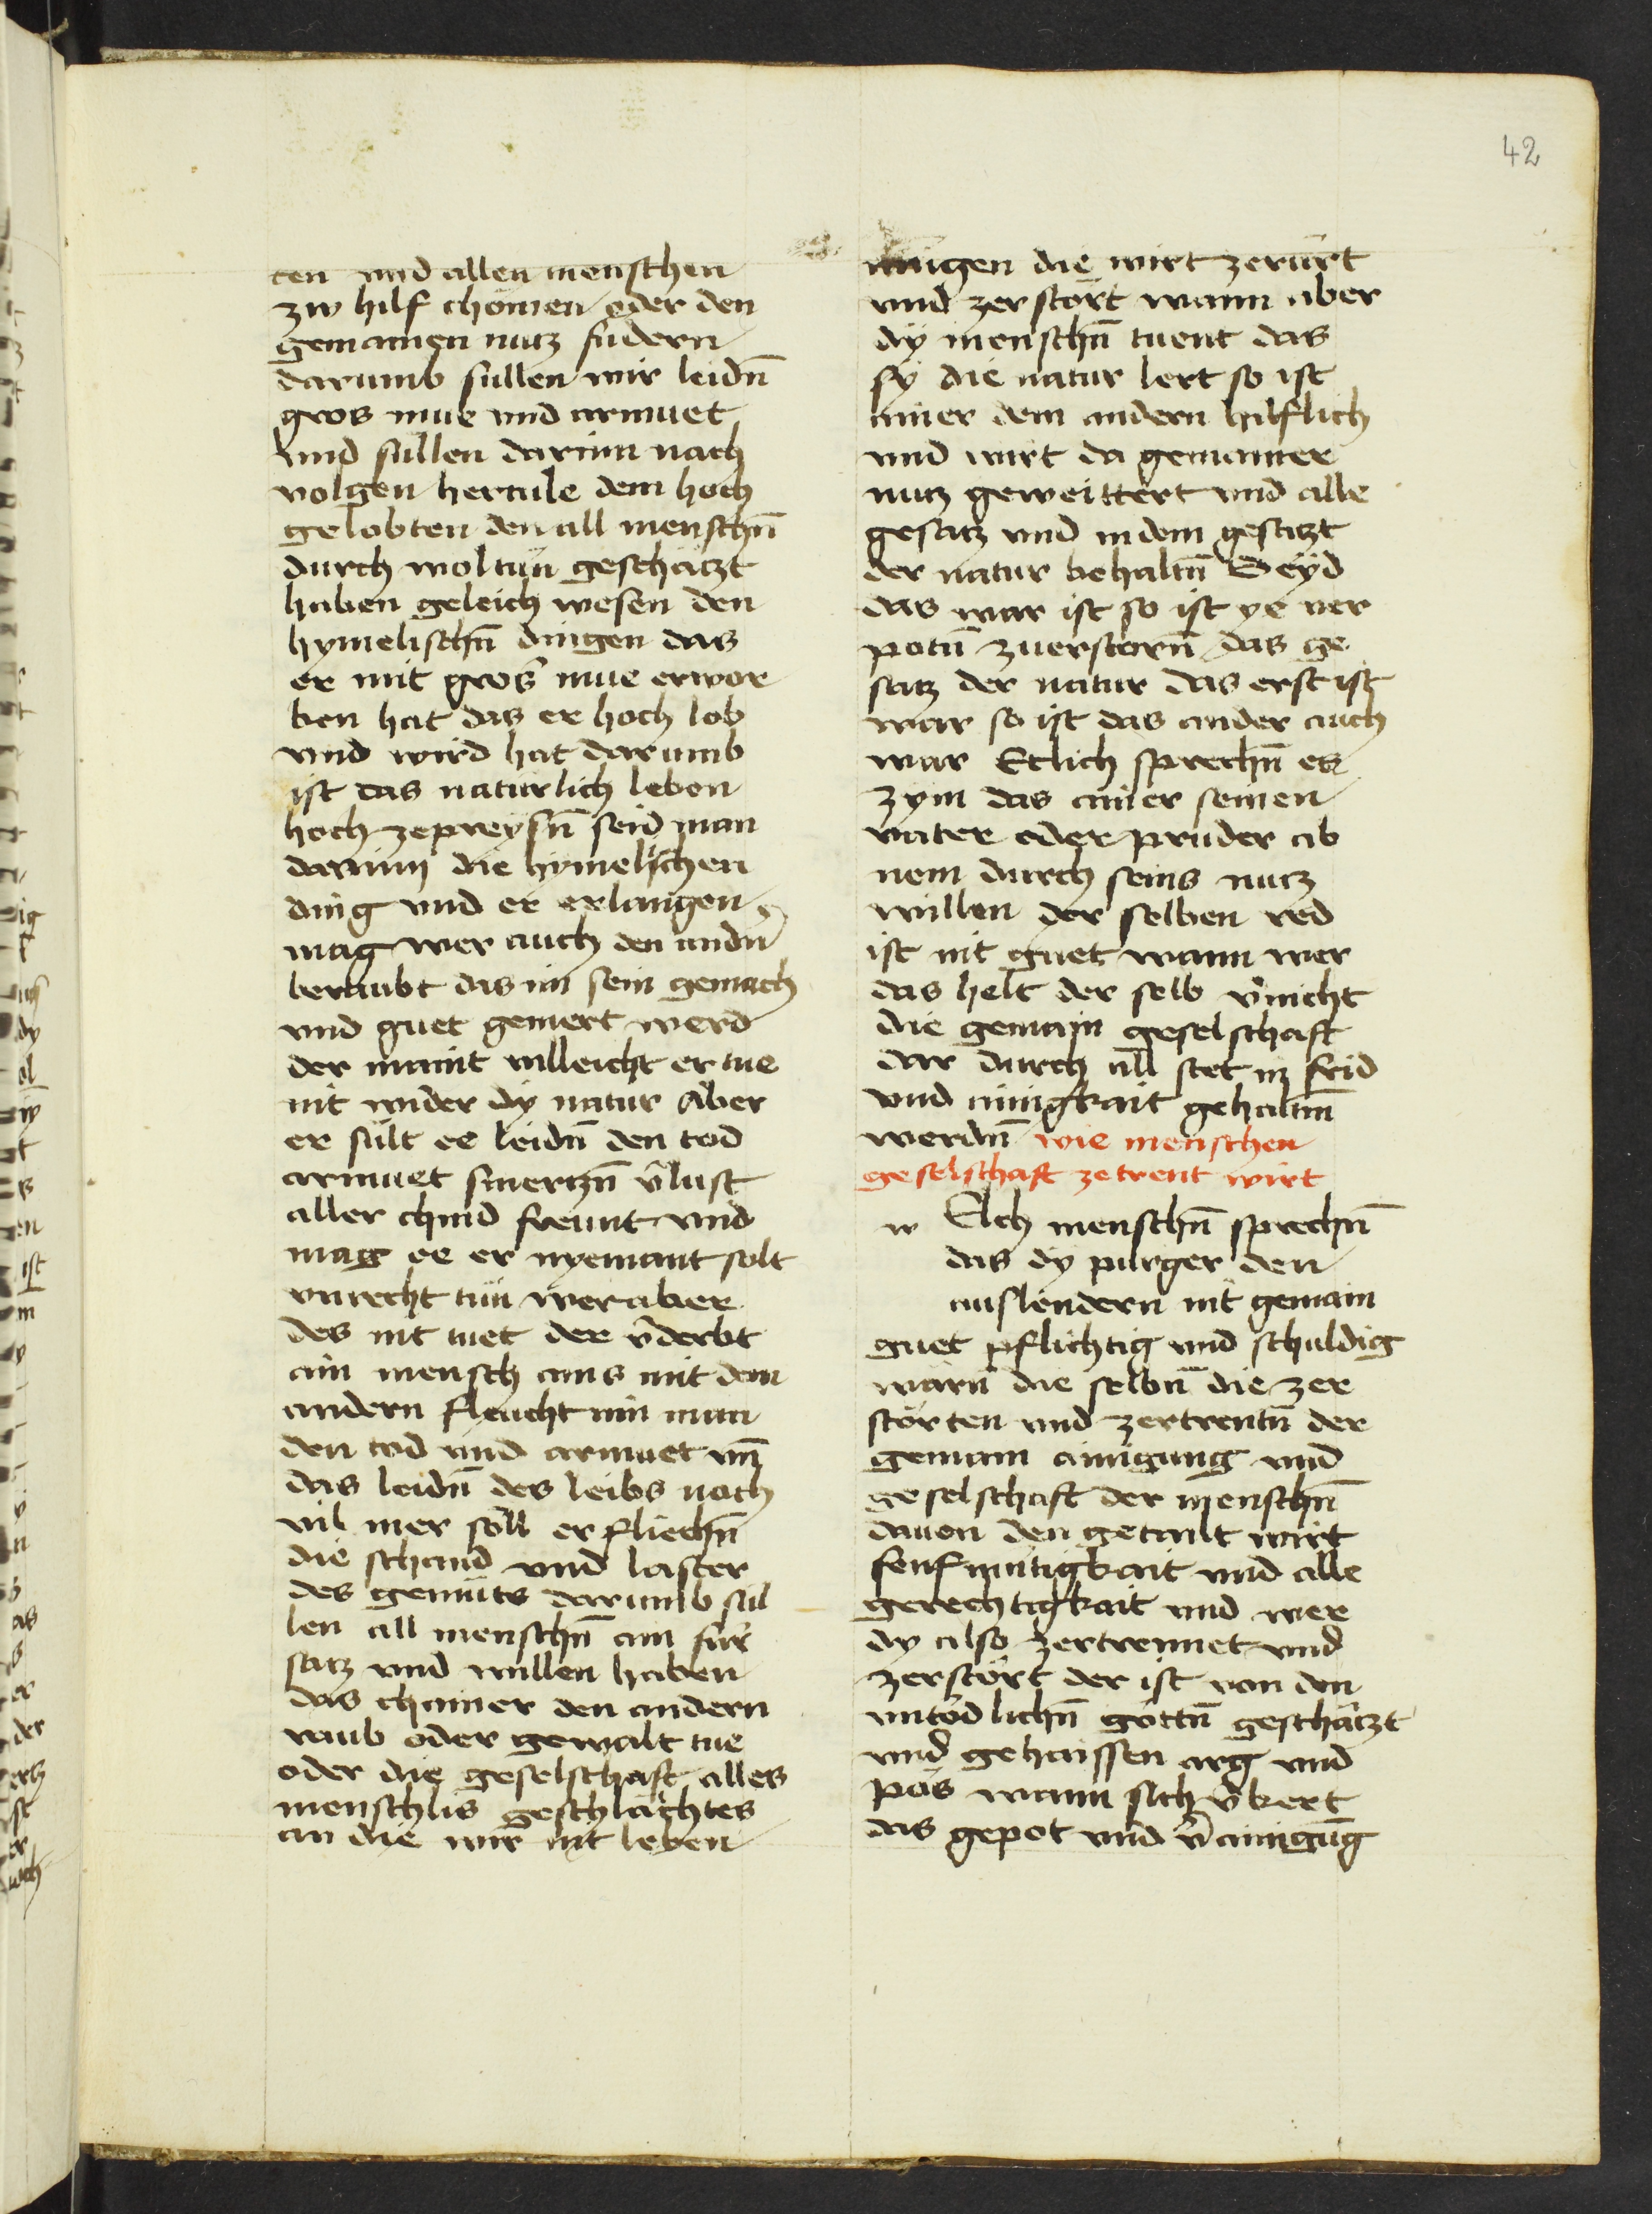 42
ten vnd allen menschen
zw hilf chömen oder den
gemainen nutz fudern
darumb süllen wir leidn̄
gros mue vnd armuet
vnd süllen darinn nach
volgen hercule dem hoch
gelobten den all menschn̄
durch woltün geschätzt
haben geleich wesen den
hymelischn̄ dingen das
er mit gros̄ mue erwor
ben hat das er hoch lob
vnd wird hat darumb
ist das natürlich leben
hoch zepreysn̄ seid man
darinn die hymelischen
ding vnd er erlangen
mag wer auch den andn̄
beraubt das im sein gemach
vnd guet gemert werd
der maint villeicht er tue
nit wider dy natur Aber
er sült ee leidn̄ den tod
armuet smertzn̄ v̄lust
aller chind freunt vnd
mag ee er nyemant solt
vnrecht tün wer aber
des nit tuet der v̄derbt
ain mensch ains mit dem
andern fleucht nün man
den tod vnd armuet vn̄
das leidn̄ des leibs noch
vil mer söll er fliechn̄
die schand vnd laster
des gemüts darumb sül
len all menschn̄ ain für
satz vnd willen haben
das chainer den andern
raub oder gewalt tue
oder die geselschaft alles
menschlis geschlächtes
an die wir nit leben
mügen die wirt zerürt
vnd zerstört wann aber
dy menschn̄ tuent das
sy die natur lert so ist
ainer dem andern hilflich
vnd wirt da gemainer
nutz geweittert vnd alle
gesatz vnd in dem gesatzt
der natur behaltn̄ Seyd
das war ist so ist ye ver
potn̄ zuerstorn̄ das ge
satz der natur das erst ist
war so ist das ander auch
war Etlich sprechn̄ es
zym das ainer seinen
vater oder prüder ab
nem durch seins nutz
willen der selben red
ist nit guet wann wer
das helt der selb v̄nicht
die gemain geselschaft
dar durch all stet in frid
vnd ainigkait gehaltn̄
werdn̄ wie menschen
geselschaft zetrent wirt
w Elch menschn̄ sprechn̄
das dy purger den
auslendern nit gemain
guet pflichtig vnd schuldig
wärn̄ die selbn̄ die zer
störten vnd zertrentn̄ der
gemain ainigung vnd
geselschaft der menschn̄
dauon den getailt wirt
senfmütigkait vnd alle
gerechtigkait vnd wer
dy also zertrennet vnd
zerstört der ist von den
vntödlichn̄ göttn̄ geschätzt
vnd gehaissen arg vnd
pös wann sich v̄kert
das gepot vnd v̄ainigūg